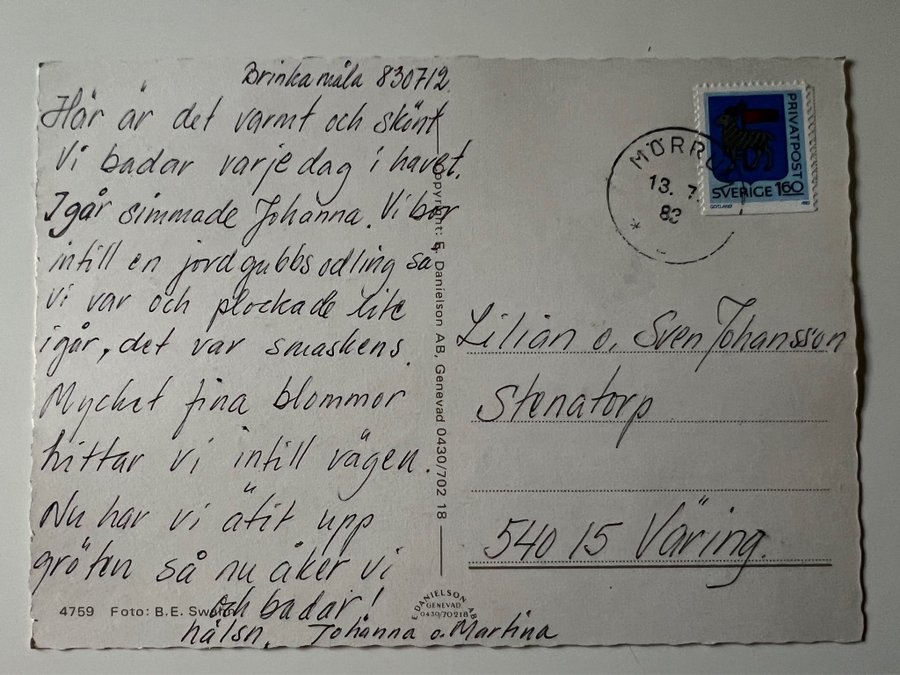 Brinkamåla 830712
Här är det varmt och skönt
Vi badar varje dag i havet.
Igår simmade Johanna. Vi bor
intill en jordgubbsodling så
vi var och plockade lite
igår, det var smaskens.
Mycket fina blommor
hittar vi intill vägen.
Nu har vi ätit upp
gröten så nu åker vi
och badar!
hälsn. Johanna o. Martina
4759 Foto: B.E.
Copyright: E. Danielson AB, Genevad 0430/702 18
E. DANIELSON AB
GENEVAD
0430/70218
MÖRRUM
13. 7.
83
PRIVATPOST
SVERIGE 160
GOTLAND
Lilian o. Sven Johansson
Stenatorp
540 15 Väring.